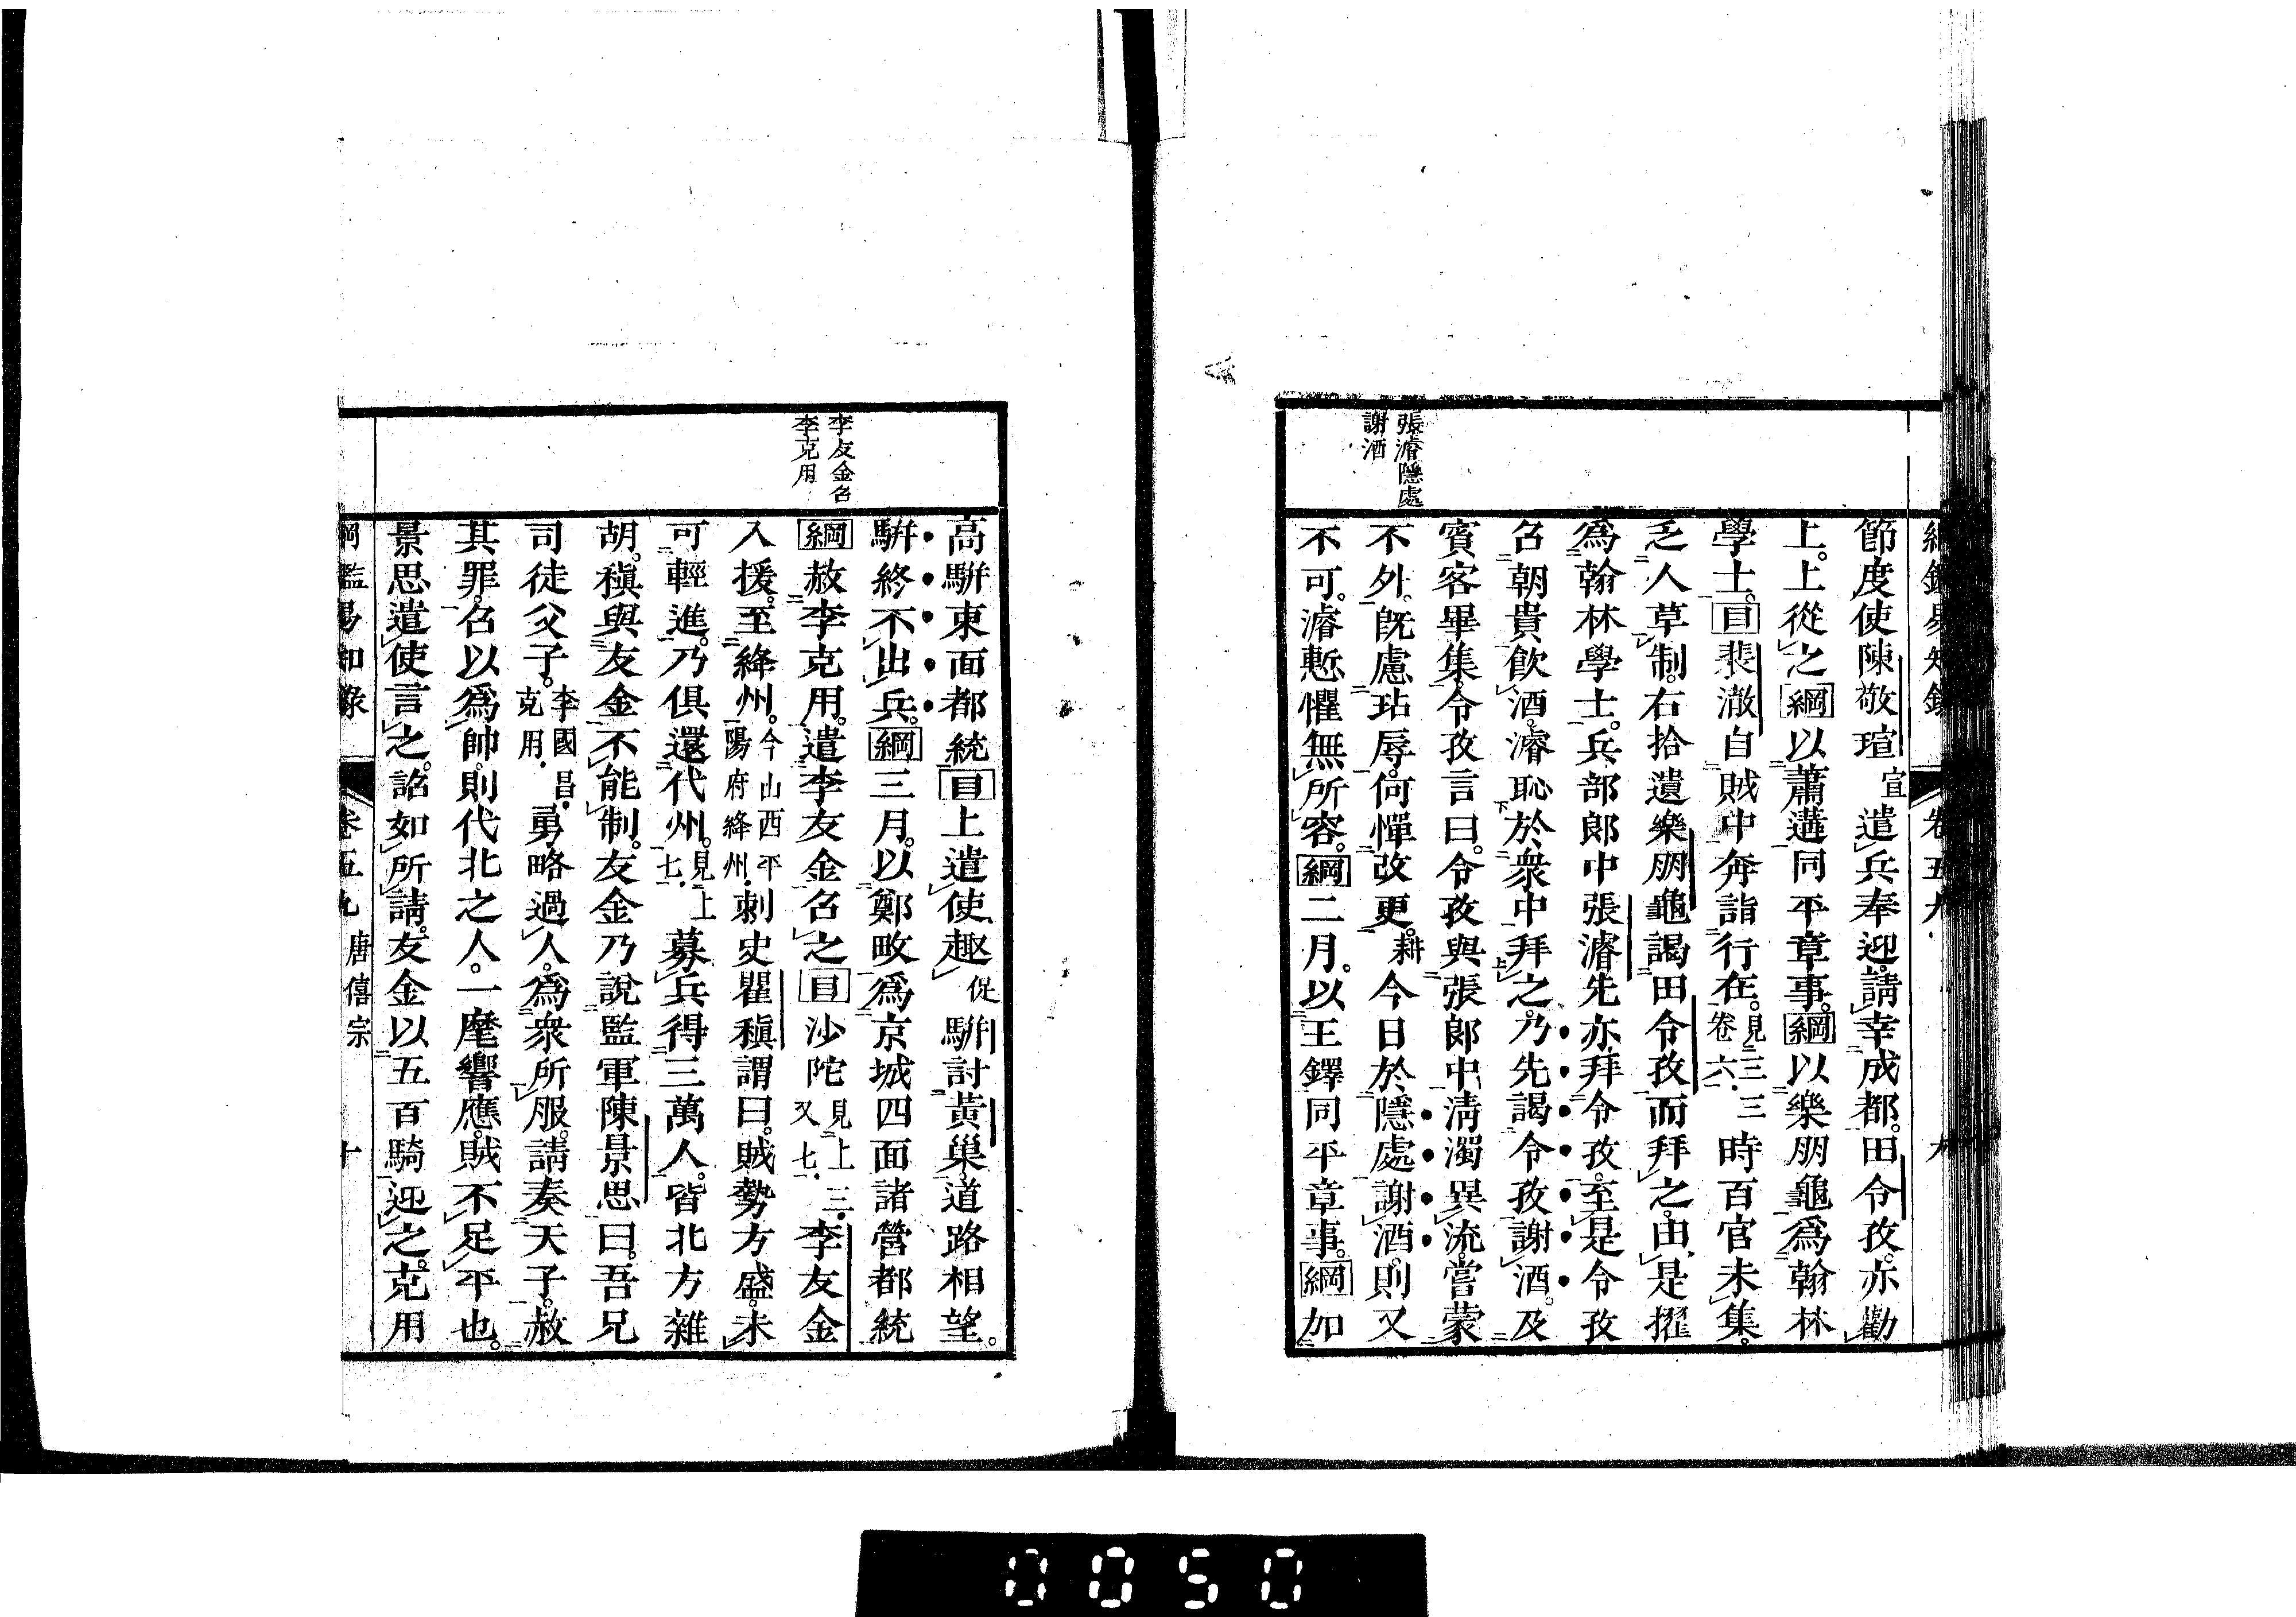 綱鑑易知錄　卷五九　九
張濬隱處
謝酒
節度使陳敬瑄宣遣兵奉迎請幸成都田令孜亦勸
上。上從之綱以蕭遘同平章事。綱以樂朋龜爲翰林
學士。目裴澈自賊中奔詣行在。見三三卷六時百官未集。
乏人草制。右拾遺樂朋龜謁田令孜而拜之。由是擢
爲翰林學士。兵部郎中張濬先亦拜令孜。至是令孜
召朝貴飲酒。濬恥於衆中拜之。乃先謁令孜謝酒。及
賓客畢集。令孜言曰。令孜與張郎中淸濁異流。嘗蒙
不外。旣慮玷辱。何憚改更。耕今日於隱處謝酒。則又
不可。濬慙懼無所容。綱二月。以王鐸同平章事。綱加
李友金召
李克用
高駢東面都統目上遣使趣促駢討黃巢。道路相望。
駢終不出兵。綱三月。以鄭畋爲京城四面諸營都統
綱赦李克用。遣李友金召之目沙陀見上三又七李友金
入援。至絳州。今山西平陽府絳州刺史瞿稹謂曰。賊勢方盛。未
可輕進。乃俱還代州。見上七募兵得三萬人。皆北方雜
胡。稹與友金不能制。友金乃說監軍陳景思曰。吾兄
司徒父子。李國昌克用勇略過人。爲衆所服。請奏天子。赦
其罪。召以爲帥。則代北之人。一麾響應。賊不足平也。
景思遣使言之。詔如所請。友金以五百騎迎之。克用
綱鑑易知錄　卷五九　唐僖宗　十
0050